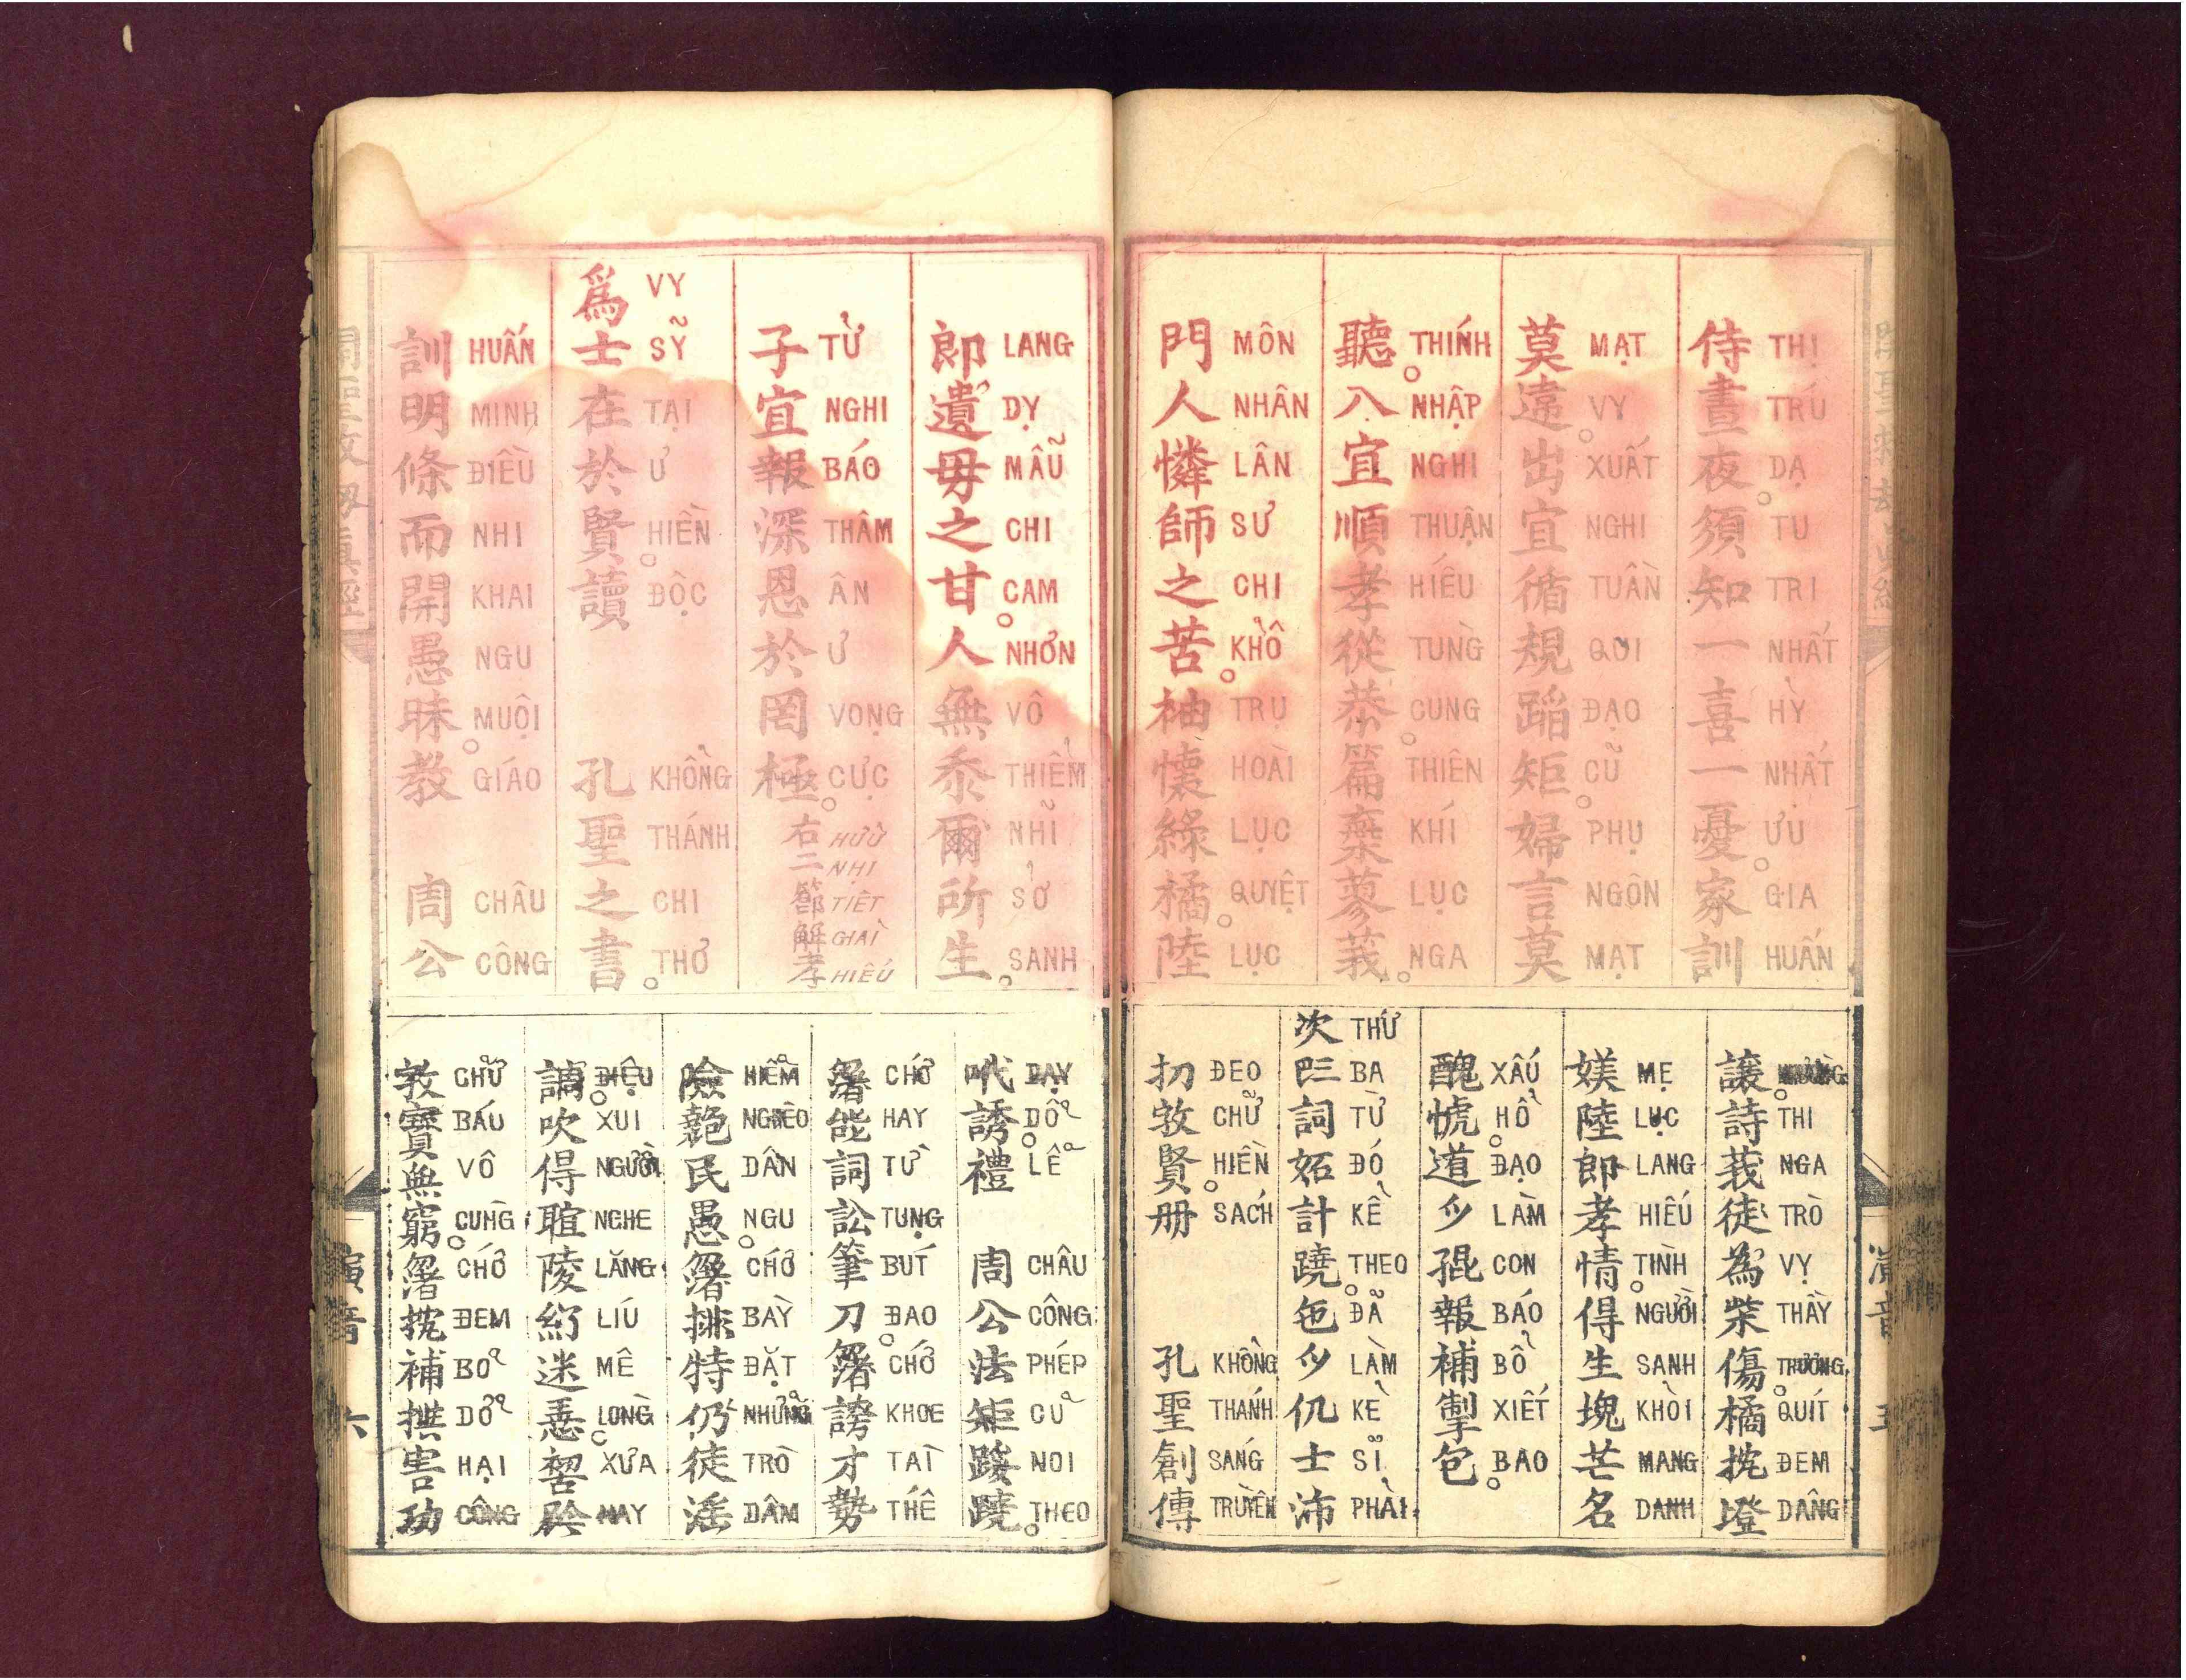 侍晝夜。須知一喜一憂。家訓
THỊ TRÚ DẠ TU TRI NHẤT HỶ NHẤT ƯU GIA HUẤN
莫違。出宜循規蹈矩。婦言莫
MẠT VY XUẤT NGHI TUẦN QUI ĐẠO CŨ PHỤ NGÔN MẠT
聽。入宜順孝從恭。篇棄蓼莪。
THÍNH NHẬP NGHI THUẬN HIẾU TUNG CUNG THIÊN KHÍ LỤC NGA
門人憐師之苦。袖懷綠橘。陸
MÔN NHÂN LÂN SƯ CHI KHỔ TRỤ HOÀI LỤC QUYỆT LỤC
讓。詩莪徒為柴傷。橘挩墱
THI NGA TRÒ VỴ THẦY TRƯỞNG QUÍT ĐEM DÂNG
媄陸郎孝情。得生塊芒名
MẸ LỤC LANG HIẾU TÌNH NGƯỜI SANH KHỎI MANG DANH
醜怳。道𱺵𡥵報補掣包。
XẤU HỔ ĐẠO LÀM CON BÁO BỔ XIẾT BAO
次𠀧詞妬計蹺。㐌𱺵仉士沛
THỨ BA TỪ ĐÓ KỂ THEO ĐÃ LÀM KẺ SĨ PHẢI
扨𡨸賢。册 孔聖創傳
ĐEO CHỮ HIỀN SÁCH KHỔNG THÁNH SÁNG TRUYỀN
郎遺毋之甘。人無忝爾所生。
LANG DỴ MẪU CHI CAM NHƠN VÔ THIỂM NHĨ SỞ SANH
子宜報深恩於罔極。右二節解孝
TỬ NGHI BÁO THÂM ÂN Ư VỌNG CỰC HỮU NHỊ TIẾT GIẢI HIẾU
爲士在於賢。讀 孔聖之書。
VY SỸ TẠI Ư HIỀN ĐỘC KHỔNG THÁNH CHI THƠ
訓明條而開愚昧。教 周公
HUẤN MINH ĐIỀU NHI KHAI NGU MUỘI GIÁO CHÂU CÔNG
𠰺誘。禮 周公法矩踐蹺。
DẠY DỖ LỄ CHÂU CÔNG PHÉP CŨ NOI THEO
𤯩能詞訟筆刀。𤯩誇才勢
CHỚ HAY TỪ TỤNG BÚT ĐAO CHỚ KHOE TÀI THẾ
險𧁷民愚。𤯩排特仍徒滛
HIỂM NGHÈO DÂN NGU CHỚ BÀY ĐẶT NHỮNG TRÒ DÂM
調。吹得𦖑陵䋥迷𢚸。𠸗𫨩
ĐIỆU XUI NGƯỜI NGHE LĂNG LÍU MÊ LÒNG XƯA NAY
𡨸寶無窮。𤯩挩補撰害功
CHỮ BÁU VÔ CÙNG CHỚ ĐEM BỎ DỞ HẠI CÔNG
演音
五
演音
六